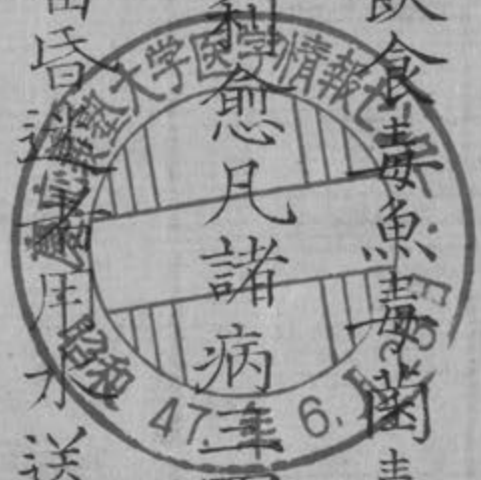 飲食毒魚毒菌毒
利愈凡諸病
昏迷用水送
慶応義塾大学医学情報センター
昭和47.年6.月